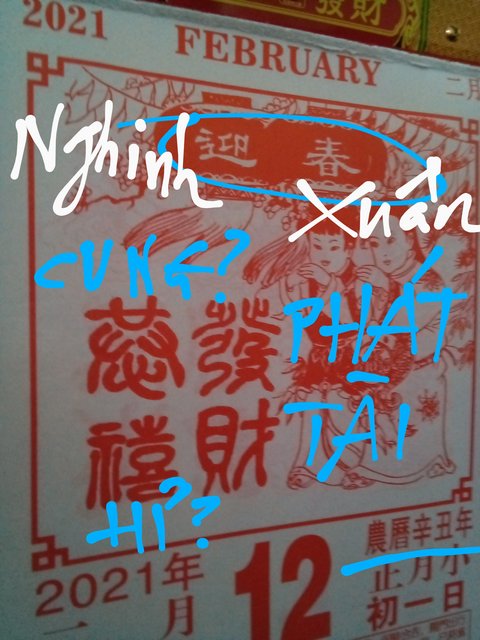 發財
2021
FEBRUARY
二月
迎春
Nghinh Xuân
CUNG?
PHÁT
TÀI
恭 發
禧 財
HỈ??
2021年
月
12
農曆辛丑年
正月小
初一日